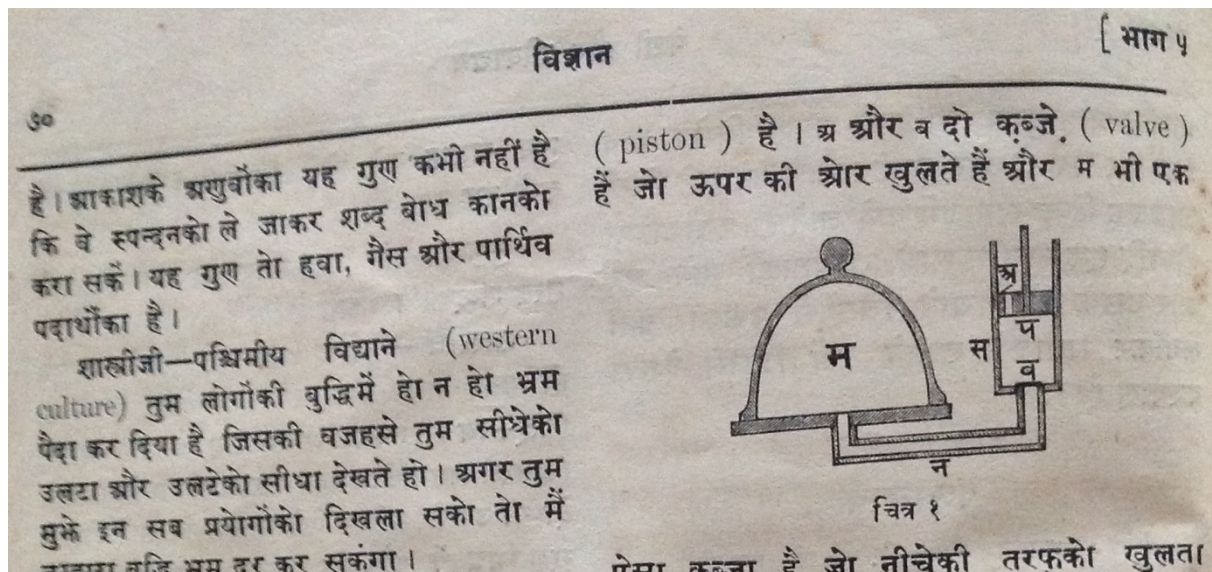 विज्ञान
[ भाग ५
७०
है। आकाशके अणुवोंका यह गुण कभी नहीं है
कि वे स्पन्दनको ले जाकर शब्द बोध कानको
करा सकें। यह गुण तो हवा, गैस और पार्थिव
पदार्थोंका है।
शास्त्रीजी—पश्चिमीय विद्याने (western
culture) तुम लोगोंकी बुद्धिमें हो न हो भ्रम
पैदा कर दिया है जिसकी वजहसे तुम सीधेको
उलटा और उलटेको सीधा देखते हो। अगर तुम
मुझे इन सब प्रयोगोंको दिखला सको तो मैं
तुम्हारा बुद्धि भ्रम दूर कर सकूंगा।
( piston ) है। अ और ब दो कब्ज़े ( valve )
हैं जो ऊपर की ओर खुलते हैं और म भी एक
अ
प
स
व
म
न
चित्र १
ऐसा कब्जा है जो नीचेकी तरफ़को खुलता